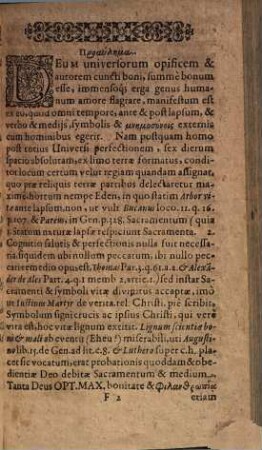 Προοίμιον.
DEUM universorum opificem &
autorem cuncti boni, summè bonum
esse, immensoq; erga genus huma-
num amore flagrare, manifestum est
ex eo, quid omni tempore, ante & post lapsum, &
verbo & medijs, symbolis & externis
cum hominibus egerit. Nam postquam homo
post totius Universi perfectionem, sex dierum
spacio absolutam, ex limo terræ formatus, condi-
tori locum certum velut regiam quandam assignat,
quo præ reliquis terræ partibus delectaretur ma-
ximè hortum nempe Eden, in quo statim Arbor
ante lapsum non, ut volt Bucanus loco. 12. q. 16.
p. 107. & Parem, in Gen. p. 328, Sacramentum (quia
Statum naturæ lapsæ respiciunt Sacramenta. 2.
Cognitio salutis & perfectionis nulla fuit necessa-
ria siquidem ubi nullum peccatum, ibi nullo pec-
cati remedio opus est. Thomas Par. 4. q. 61. a. 2. & Alexan-
der de Ales Part. 4. q. 1 memb. 2. srtic. 1.) sed instar Sa-
cramenti & symboli vitæ divinitus acceptæ, imò
ut Iustinus Martir de verita rel. Christi, piè scribit,
Symbolum sign crucis ac ipsius Christi, qui verè
vita est, hoc vitæ lignum extitit. Lignum scientiæ bo-
ni & mali ab eventu (Eheu!) miserabili, uti Augusti-
no lib. 15. de Gen. ad lit. c. 8. & Luthero super c. h. pla-
cet sic vocatum, erat probationis quoddam & obe-
dientiæ Deo debitæ Sacramentum & medium.
Tanta Deus OPT. MAX, bonitate & φιλανθρωπίας
F 2 etiam